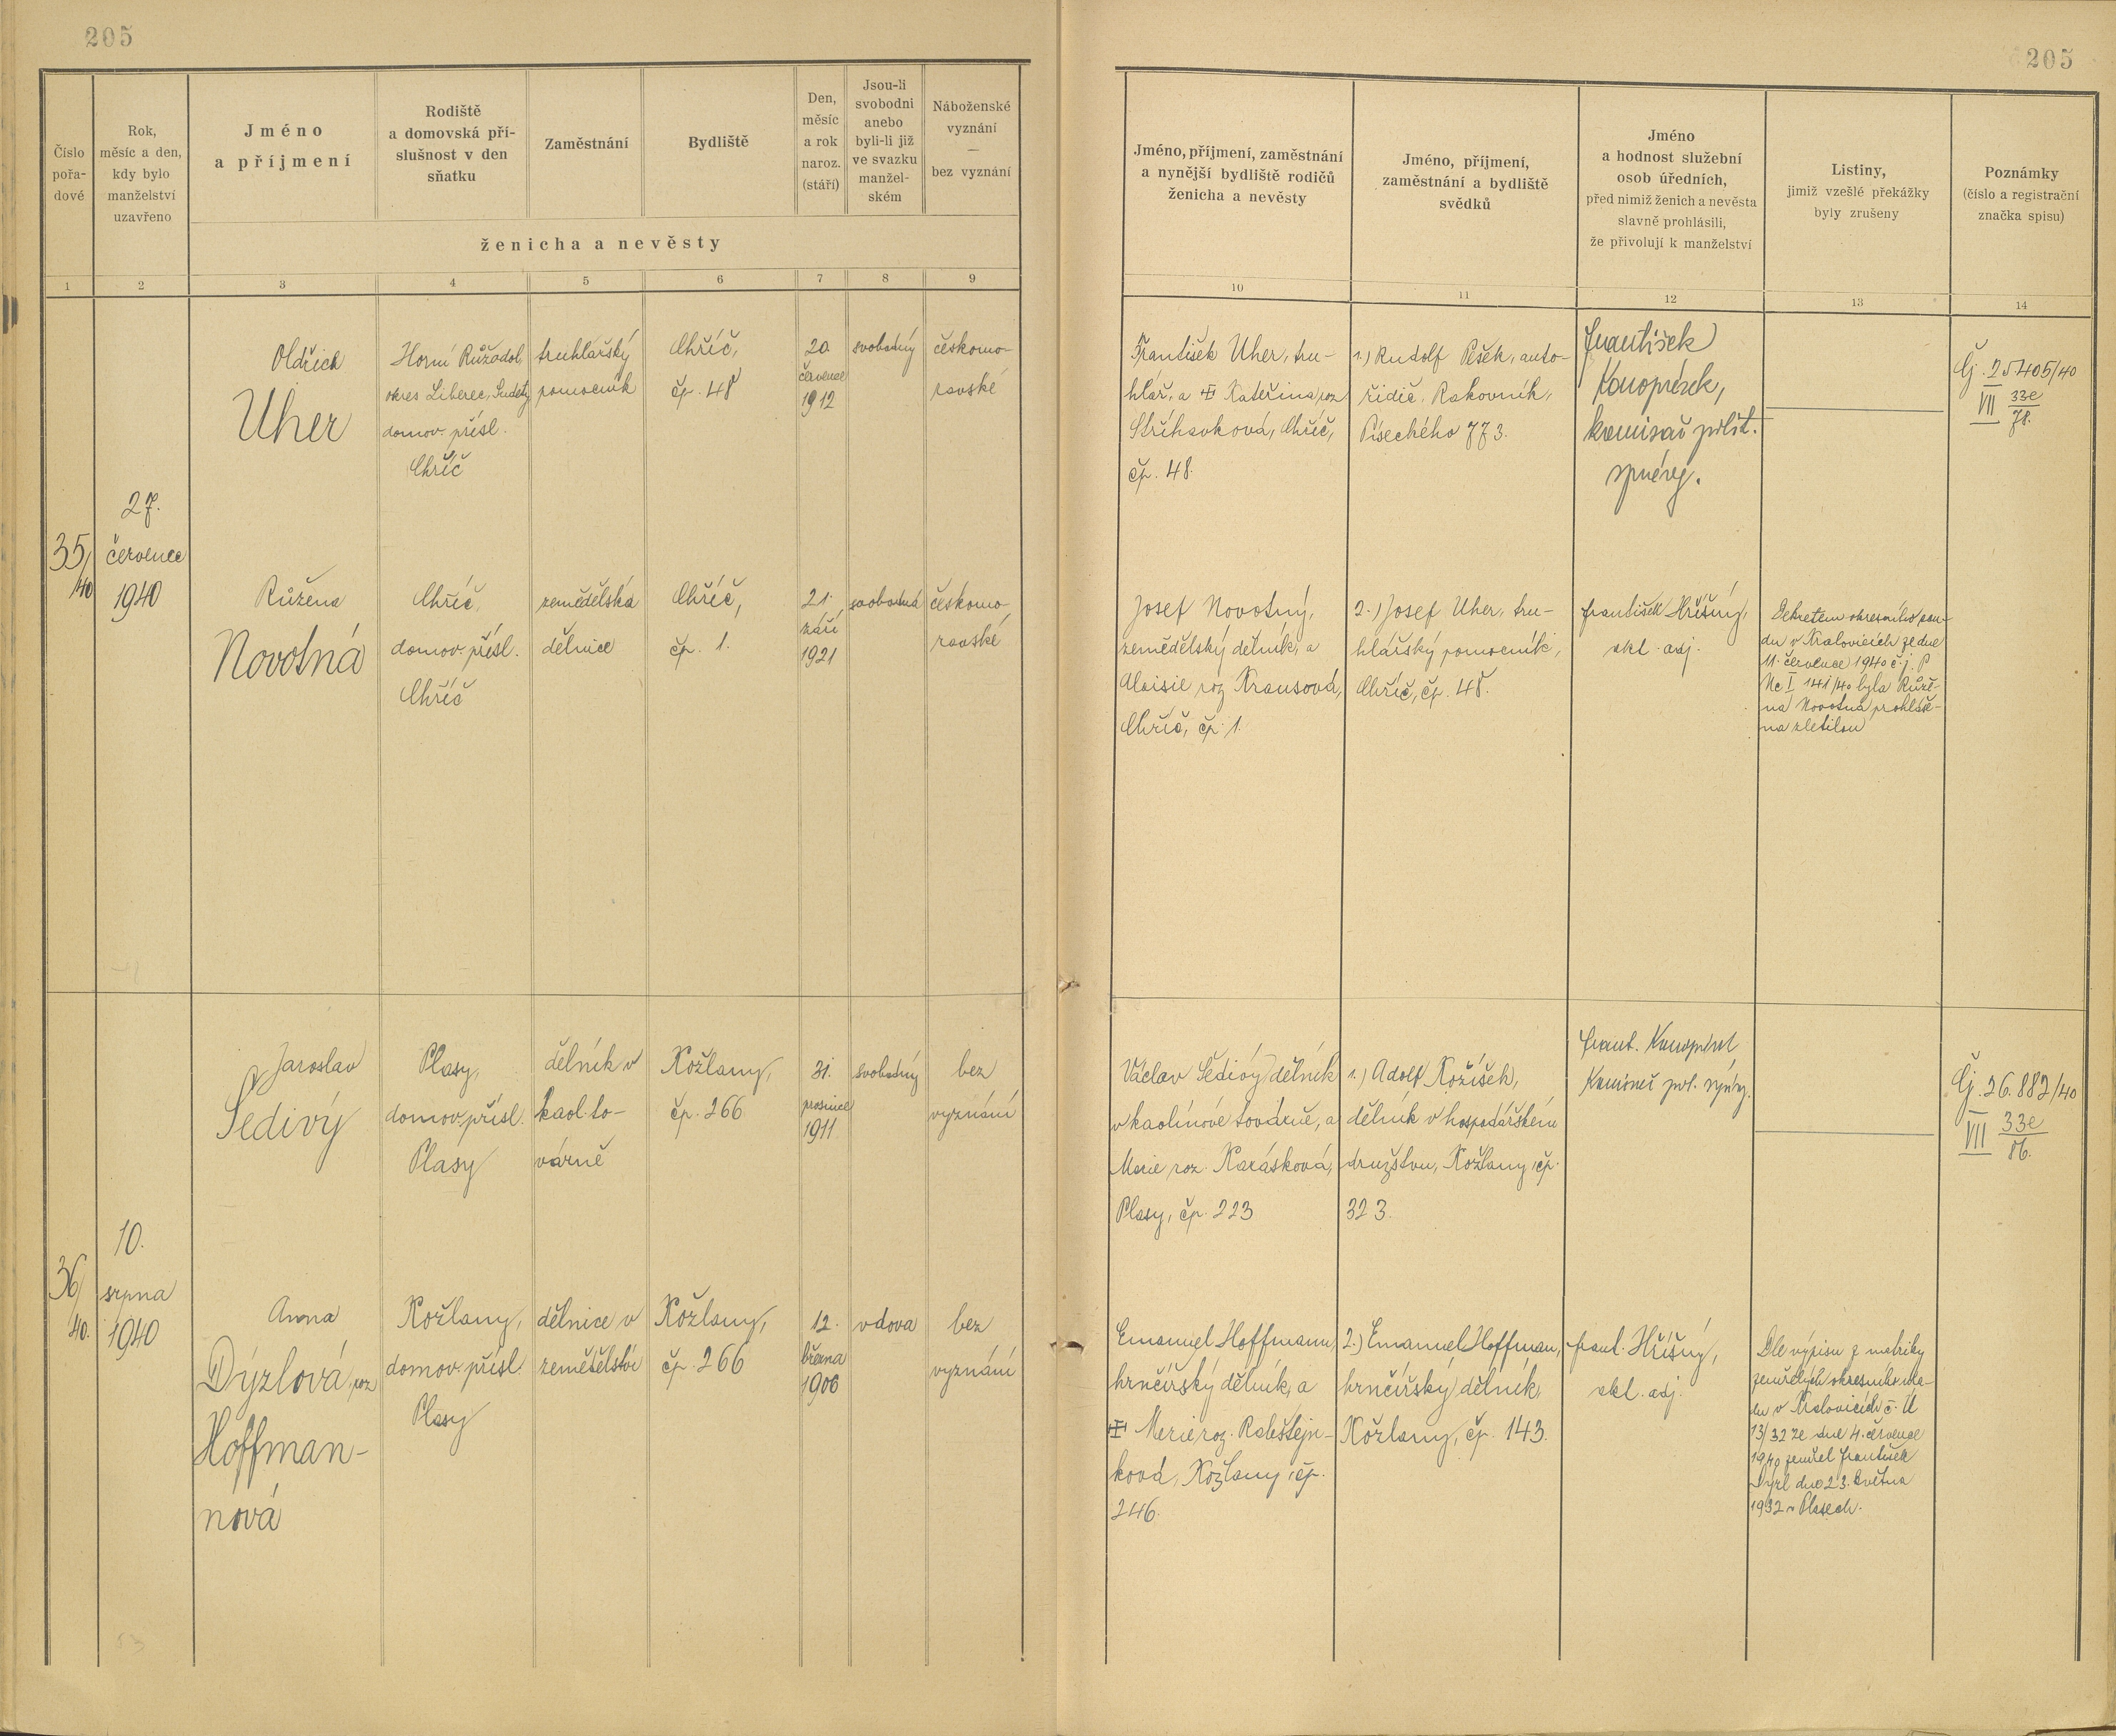 205
205
Číslo
pořa-
dové
Rok,
měsíc a den,
kdy bylo
manželství
uzavřeno
Jméno
a příjmení
Rodiště
a domovská pří-
slušnost v den
sňatku
Zaměstnání
Bydliště
Den,
měsíc
a rok
naroz.
(stáří)
Jsou-li
svobodni
anebo
byli-li již
ve svazku
manžel-
ském
Náboženské
vyznání
—
bez vyznání
ženicha a nevěsty
Jméno, příjmení, zaměstnání
a nynější bydliště rodičů
ženicha a nevěsty
Jméno, příjmení,
zaměstnání a bydliště
svědků
Jméno
a hodnost služební
osob úředních,
před nimiž ženich a nevěsta
slavně prohlásili,
že přivolují k manželství
Listiny,
jimiž vzešlé překážky
byly zrušeny
Poznámky
(číslo a registrační
značka spisu)
1 2 3 4 5 6 7 8 9 10 11 12 13 14
35/
40
27.
července
1940
Oldřich
Uher
Horní Růžodol,
okres Liberec, Sudety
domov. přísl.
Chříč
truhlářský
pomocník
Chříč,
čp. 48
20.
července
1912
svobodný
českomo-
ravské
František Uher, tru-
hlář, a Kateřina roz.
Stříhavková, Chříč,
čp. 48.
1.) Rudolf Pešek, auto-
řidič, Rakovník,
Píseckého 773.
František
Konopásek,
komisař polit.
správy.
Čj. 25405/40
VII 33e
78.
Růžena
Novotná
Chříč,
domov. přísl.
Chříč
zemědělská
dělnice
Chříč,
čp. 1.
21.
září
1921
svobodná
českomo-
ravské
Josef Novotný,
zemědělský dělník, a
Aloisie roz. Krausová,
Chříč, čp. 1.
2.) Josef Uher, tru-
hlářský pomocník,
Chříč, čp. 48.
František Hříšný,
akl. adj.
Dekretem okresního sou-
du v Kralovicích ze dne
11. července 1940 č.j. P
Nc I 141/40 byla Růže-
na Novotná prohláše-
na zletilou
36/
40.
10.
srpna
1940
Jaroslav
Šedivý
Plasy,
domov. přísl.
Plasy
dělník v
kaol. to-
várně
Kožlany,
čp. 266
31.
prosince
1911
svobodný
bez
vyznání
Václav Šedivý, dělník
v kaolinové továrně, a
Marie roz. Karásková,
Plasy, čp. 223
1.) Adolf Kožíšek,
dělník v hospodářském
družstvu, Kožlany, čp.
323.
Frant. Konopásek
Komisař pol. správy.
Čj. 26.882/40
VII 33e
86.
Anna
Dýzlová, roz.
Hoffman-
nová
Kožlany,
domov. přísl.
Plasy
dělnice v
zemědělství
Kožlany,
čp. 266
12.
března
1906
vdova
bez
vyznání
Emanuel Hoffmann,
hrnčířský dělník, a
Marie roz.
Kožlany, čp.
246.
2.) Emanuel Hoffman,
hrnčířský dělník,
Kožlany, čp. 143.
Frant. Hříšný,
akl. adj.
Dle výpisu z matriky
zemřelých okresního úřa-
du v Kralovicích č. Ú
13/32 ze dne 4. července
1940 zemřel František
Dýzl dne 23. května
1932 v Plasech.